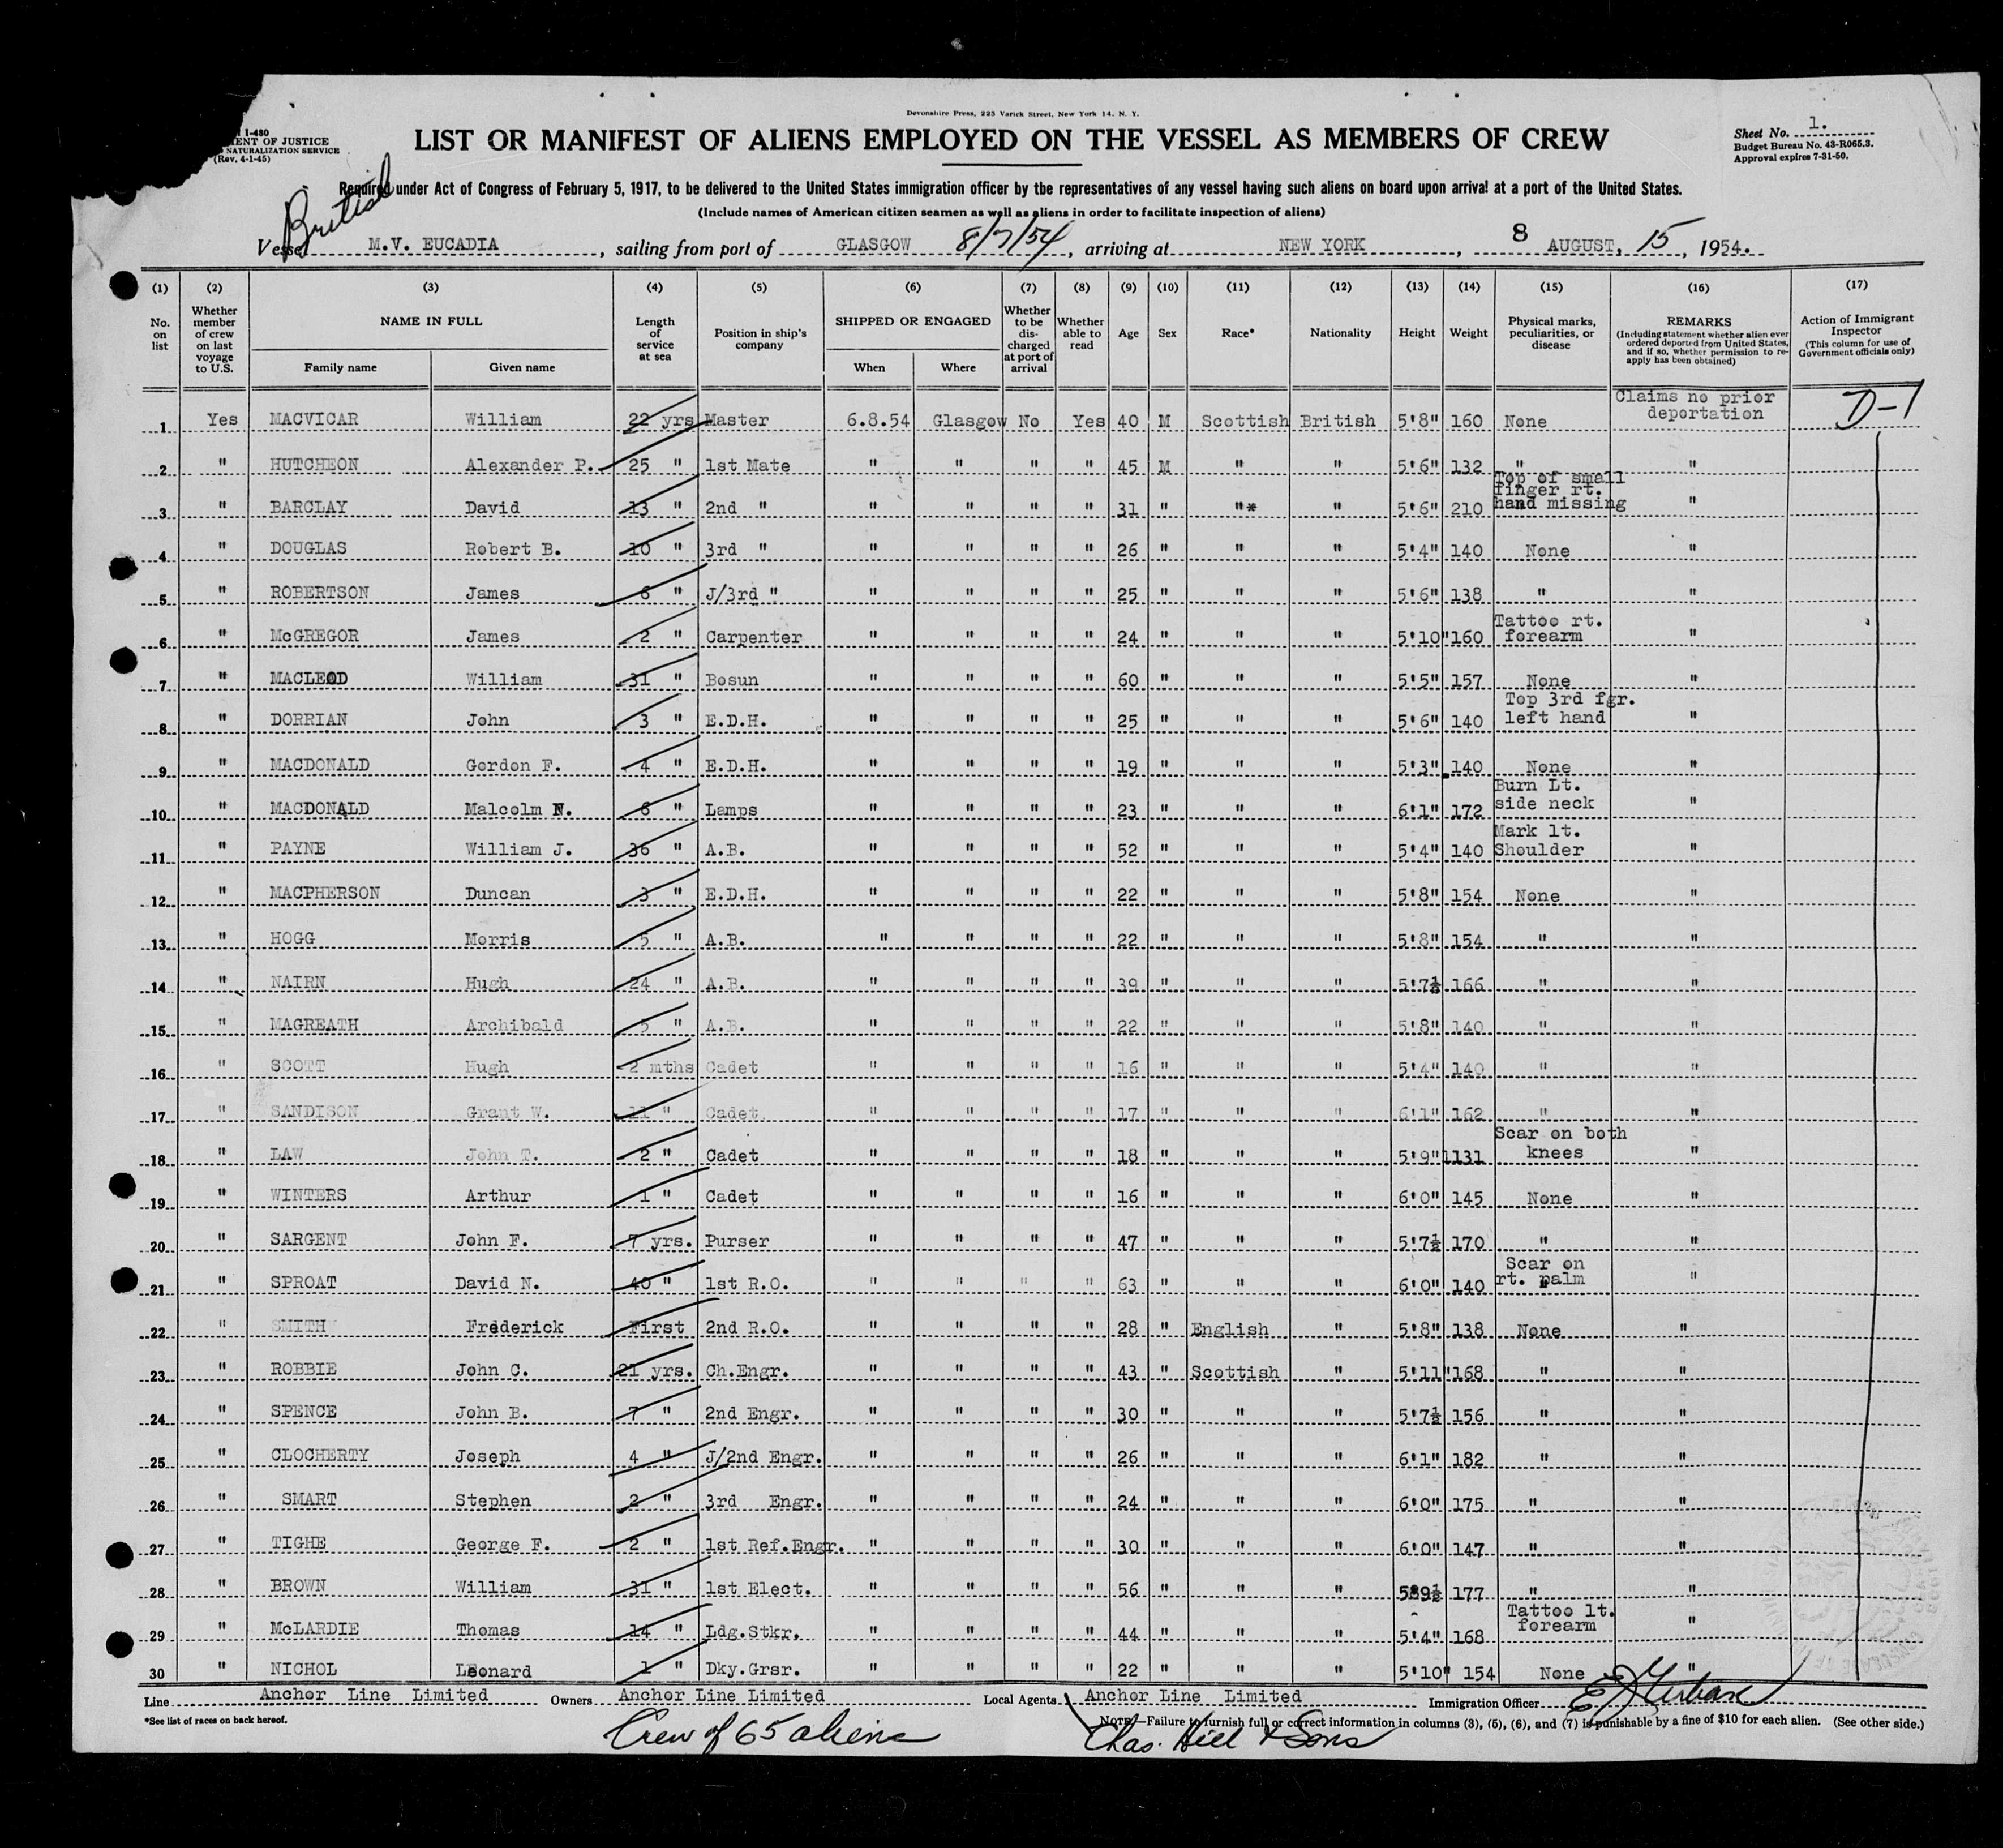 Devonshire Press, 225 Varick Street, New York 14, N. Y.
I-480
MENT OF JUSTICE
NATURALIZATION SERVICE
(Rev. 4-1-45)
LIST OR MANIFEST OF ALIENS EMPLOYED ON THE VESSEL AS MEMBERS OF CREW
Sheet No. 1.
Budget Bureau No. 43-R065.3.
Approval expires 7-31-50.
British
Required under Act of Congress of February 5, 1917, to be delivered to the United States immigration officer by the representatives of any vessel having such aliens on board upon arrival at a port of the United States.
(Include names of American citizen seamen as well as aliens in order to facilitate inspection of aliens)
Vessel M.V. EUCADIA, sailing from port of GLASGOW 8/7/54, arriving at NEW YORK, 8 AUGUST, 15, 1954.
(1) (2) (3) (4) (5) (6) (7) (8) (9) (10) (11) (12) (13) (14) (15) (16) (17)
No. on list
Whether member of crew on last voyage to U.S.
NAME IN FULL
Family name
Given name
Length of service at sea
Position in ship's company
SHIPPED OR ENGAGED
When
Where
Whether to be discharged at port of arrival
Whether able to read
Age
Sex
Race*
Nationality
Height
Weight
Physical marks, peculiarities, or disease
REMARKS
(Including statement whether alien ever ordered deported from United States, and if so, whether permission to reapply has been obtained)
Action of Immigrant Inspector
(This column for use of Government officials only)
1 Yes MACVICAR William 22 yrs Master 6.8.54 Glasgow No Yes 40 M Scottish British 5'8" 160 None Claims no prior deportation D-1
2 " HUTCHEON Alexander P. 25 " 1st Mate " " " " 45 M " " 5'6" 132 " "
3 " BARCLAY David 13 " 2nd " " " " " 31 " "* " 5'6" 210 Top of small finger rt. hand missing "
4 " DOUGLAS Robert B. 10 " 3rd " " " " " 26 " " " 5'4" 140 None "
5 " ROBERTSON James 6 " J/3rd " " " " " 25 " " " 5'6" 138 " "
6 " McGREGOR James 2 " Carpenter " " " " 24 " " " 5'10" 160 Tattoo rt. forearm "
7 " MACLEOD William 31 " Bosun " " " " 60 " " " 5'5" 157 None "
8 " DORRIAN John 3 " E.D.H. " " " " 25 " " " 5'6" 140 Top 3rd fgr. left hand "
9 " MACDONALD Gordon F. 4 " E.D.H. " " " " 19 " " " 5'3" 140 None "
10 " MACDONALD Malcolm N. 6 " Lamps " " " " 23 " " " 6'1" 172 Burn Lt. side neck "
11 " PAYNE William J. 36 " A.B. " " " " 52 " " " 5'4" 140 Mark lt. Shoulder "
12 " MACPHERSON Duncan 3 " E.D.H. " " " " 22 " " " 5'8" 154 None "
13 " HOGG Morris 5 " A.B. " " " " 22 " " " 5'8" 154 " "
14 " NAIRN Hugh 24 " A.B. " " " " 39 " " " 5'7½ 166 " "
15 " MAGREATH Archibald 5 " A.B. " " " " 22 " " " 5'8" 140 " "
16 " SCOTT Hugh 2 mths Cadet " " " " 16 " " " 5'4" 140 " "
17 " SANDISON Grant W. 11 " Cadet " " " " 17 " " " 6'1" 162 " "
18 " LAW John T. 2 " Cadet " " " " 18 " " " 5'9" 131 Scar on both knees "
19 " WINTERS Arthur 1 " Cadet " " " " 16 " " " 6'0" 145 None "
20 " SARGENT John F. 7 yrs. Purser " " " " 47 " " " 5'7½ 170 " "
21 " SPROAT David N. 40 " 1st R.O. " " " " 63 " " " 6'0" 140 Scar on rt. palm "
22 " SMITH Frederick First 2nd R.O. " " " " 28 " English " 5'8" 138 None "
23 " ROBBIE John C. 21 yrs. Ch.Engr. " " " " 43 " Scottish " 5'11" 168 " "
24 " SPENCE John B. 7 " 2nd Engr. " " " " 30 " " " 5'7½ 156 " "
25 " CLOCHERTY Joseph 4 " J/2nd Engr. " " " " 26 " " " 6'1" 182 " "
26 " SMART Stephen 2 " 3rd Engr. " " " " 24 " " " 6'0" 175 " "
27 " TIGHE George F. 2 " 1st Ref.Engr. " " " " 30 " " " 6'0" 147 " "
28 " BROWN William 31 " 1st Elect. " " " " 56 " " " 5'9½ 177 " "
29 " McLARDIE Thomas 14 " Ldg.Stkr. " " " " 44 " " " 5'4" 168 Tattoo lt. forearm "
30 " NICHOL Leonard 1 " Dky.Grsr. " " " " 22 " " " 5'10" 154 None "
Line Anchor Line Limited Owners Anchor Line Limited Local Agents Anchor Line Limited Immigration Officer
*See list of races on back hereof.
NOTE—Failure to furnish full or correct information in columns (3), (5), (6), and (7) is punishable by a fine of $10 for each alien. (See other side.)
Crew of 65 aliens
Chas. Hill & Sons